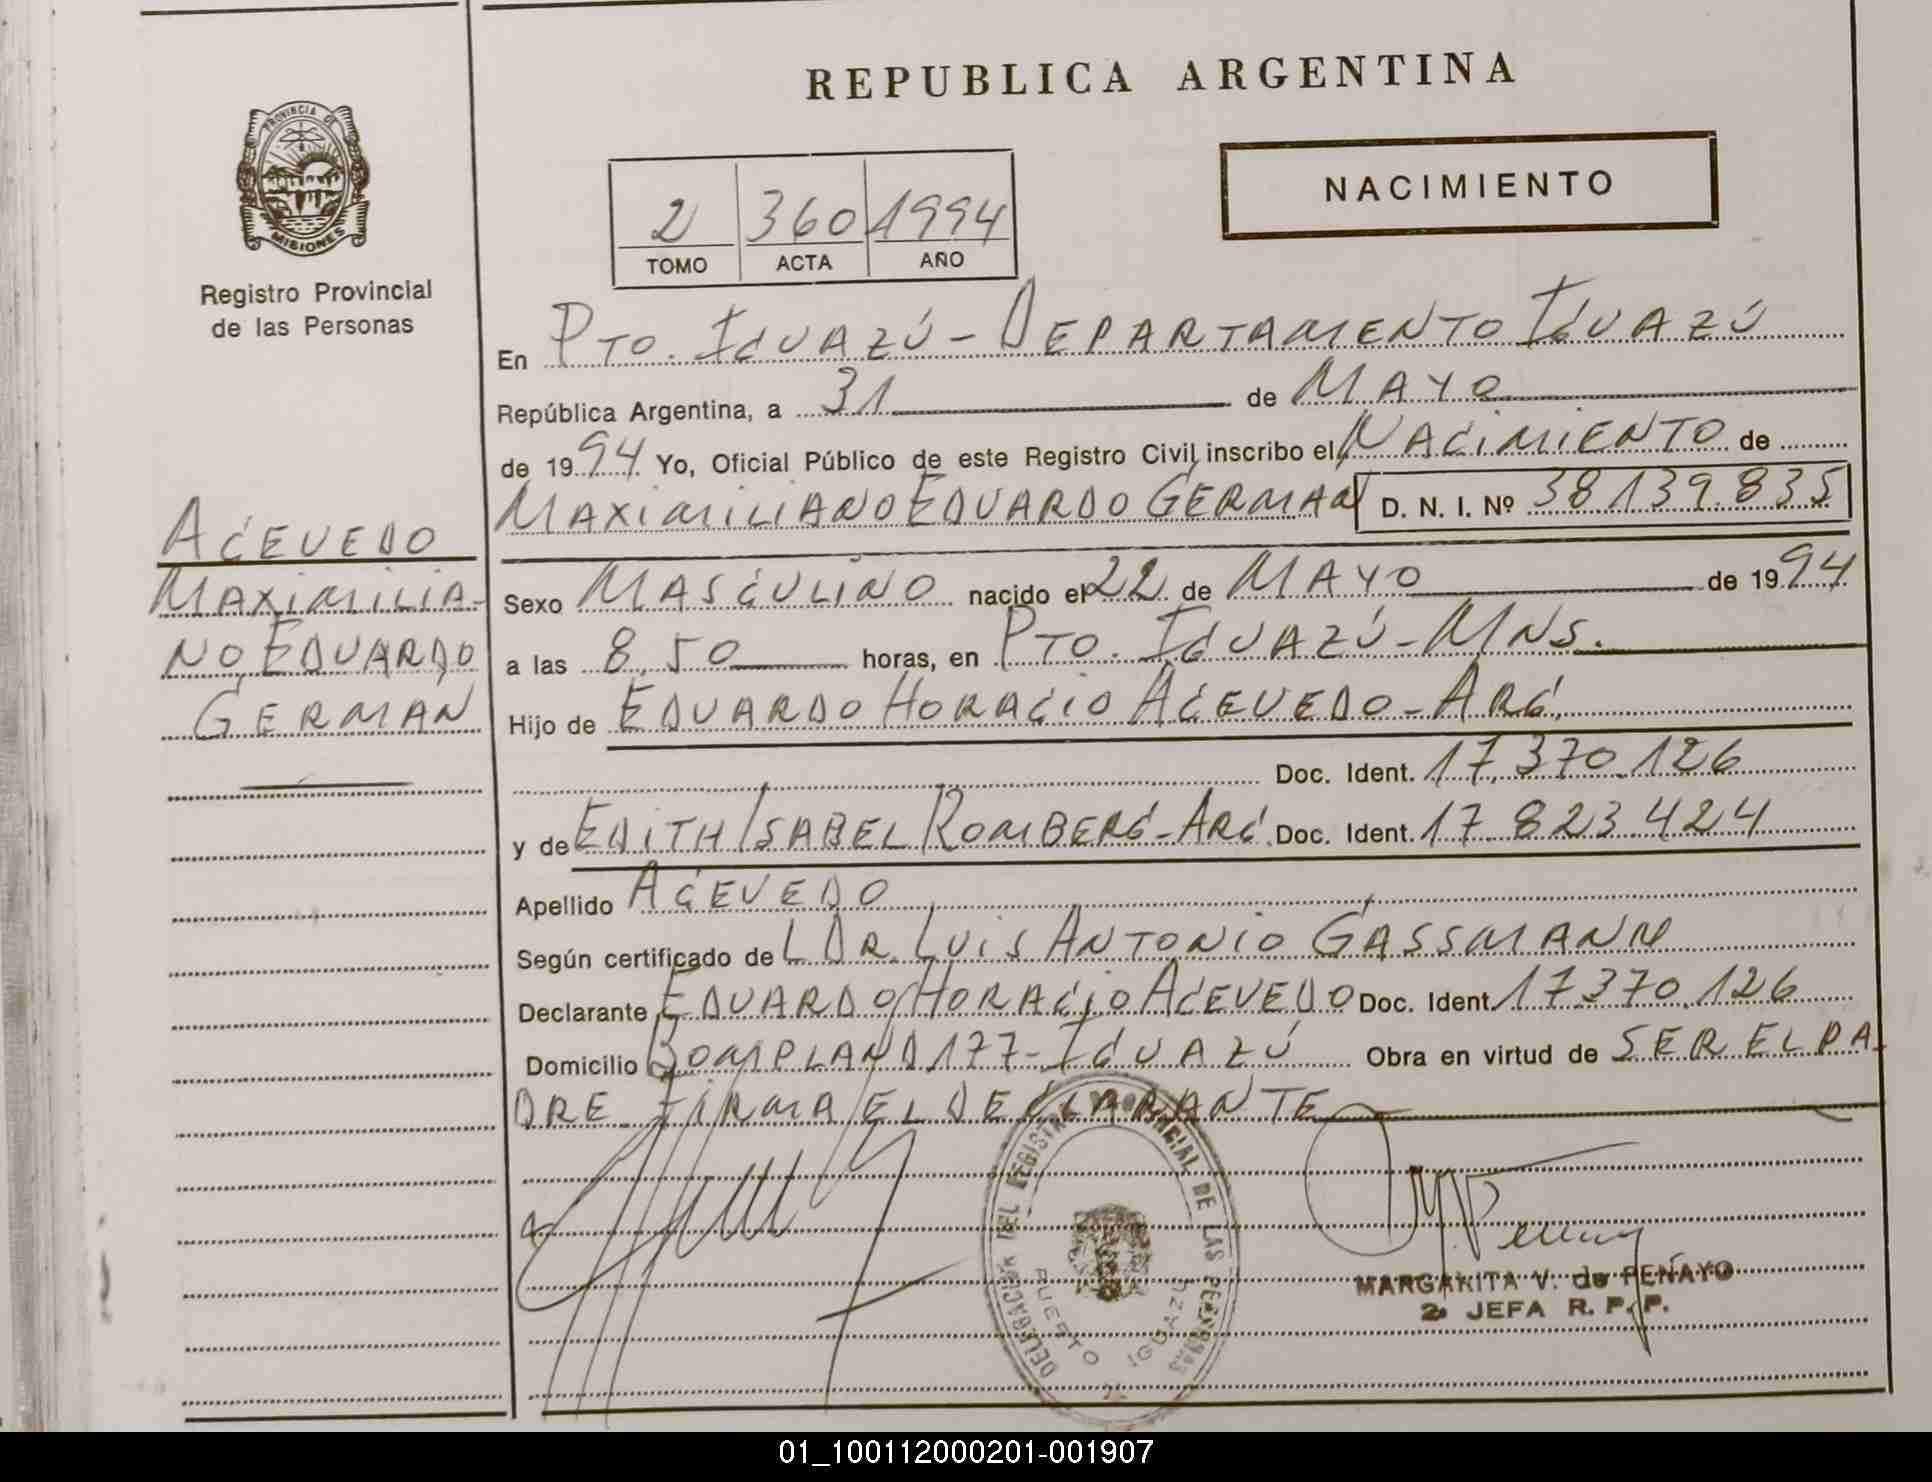 REPUBLICA ARGENTINA
PROVINCIA DE
MISIONES
Registro Provincial
de las Personas
NACIMIENTO
2 360 1994
TOMO ACTA AÑO
En PTO. IGUAZÚ - DEPARTAMENTO IGUAZÚ
República Argentina, a 31 de MAYO
de 1994 Yo, Oficial Público de este Registro Civil inscribo el NACIMIENTO de
MAXIMILIANO EDUARDO GERMAN D. N. I. Nº 38139.835
ACEVEDO
MAXIMILIA-
NO EDUARDO
GERMAN
Sexo MASCULINO nacido el 22 de MAYO de 1994
a las 8,50 horas, en PTO. IGUAZÚ - MNS.
Hijo de EDUARDO HORACIO ACEVEDO - ARG.
Doc. Ident. 17.370.126
y de EDITH ISABEL ROMBERG - ARG. Doc. Ident. 17.823.424
Apellido ACEVEDO
Según certificado de L DR. LUIS ANTONIO GASSMANN
Declarante EDUARDO HORACIO ACEVEDO Doc. Ident. 17370.126
Domicilio BOMPLAND 177 - IGUAZÚ Obra en virtud de SER EL PA-
DRE FIRMA EL DECLARANTE
DELEGACION DEL REGISTRO PROVINCIAL DE LAS PERSONAS
PUERTO IGUAZU
MARGARITA V. de PENAYO
2º JEFA R. P. P.
01_100112000201-001907